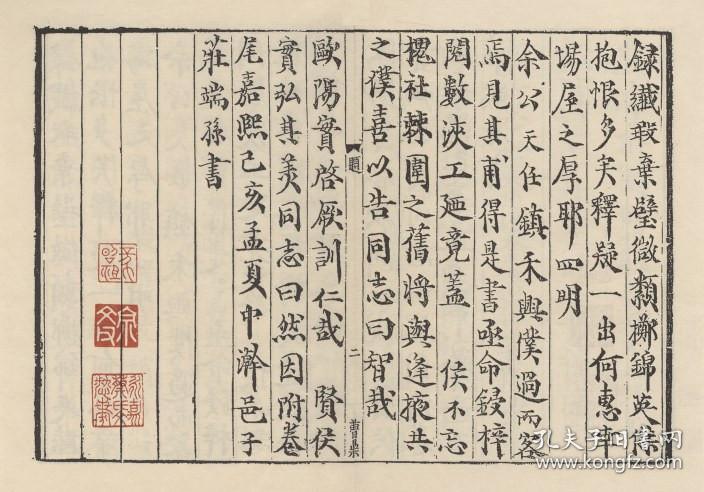 録纖瑕棄璧微纇擲錦英儁
抱恨多矣釋疑一出何惠
場屋之厚耶四明
余公天任鎮禾興僕過而客
焉見其甫得是書亟命鋟梓
閱數浹工廼竟蓋 侯不忘
槐社棘圍之舊將與逢掖共
之僕喜以告同志曰智哉
題 二
歐陽實啓厥訓仁哉 賢侯
實弘其美同志曰然因附卷
尾嘉熙己亥孟夏中澣邑子
莊端孫書
孔夫子旧书网
www.kongfz.com